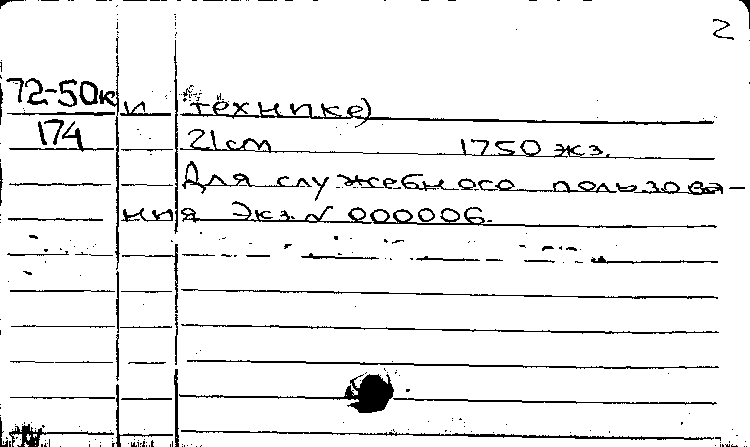 2
72-50к и технике)
174 21см 1750 экз.
Для служебного пользова-
ния Экз. № 000006.